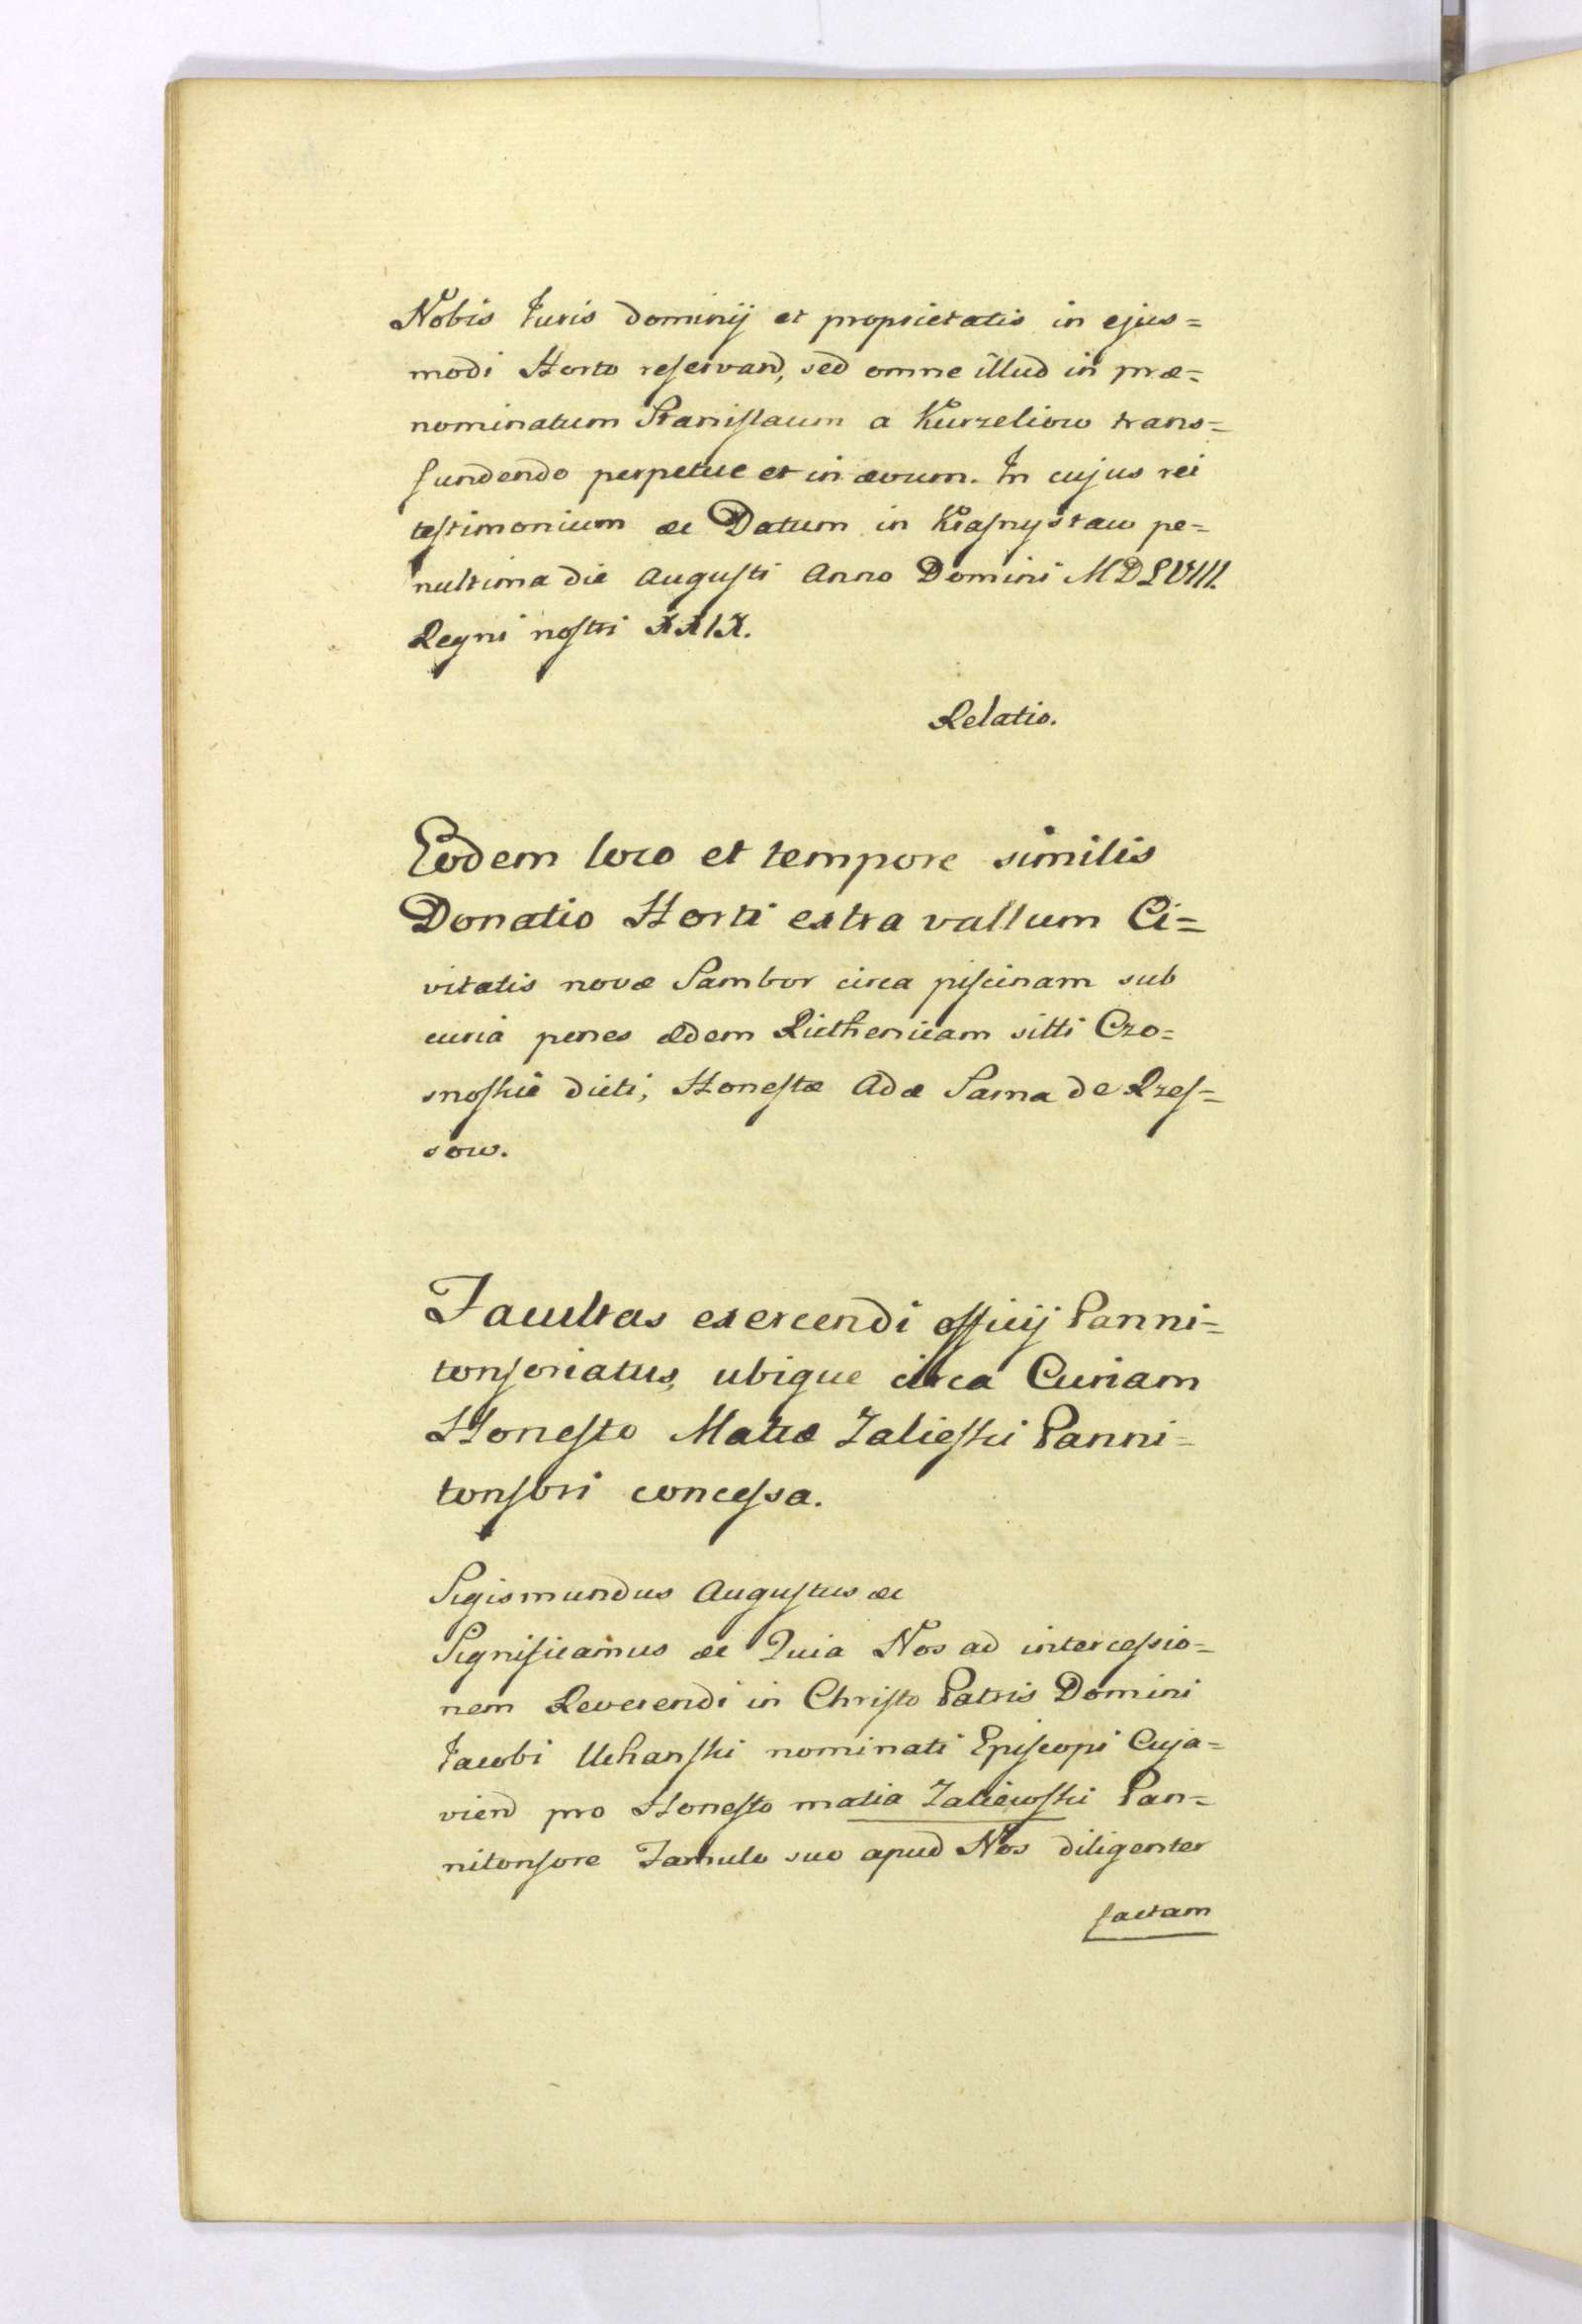 Nobis Iuris dominij et proprietatis in ejus=
modi Horto reservand, sed omne illud in præ=
nominatum Stanislaum a Kurzeliow trans=
fundendo perpetue et in ævum. In cujus rei
testimonium &c Datum in Krasnystaw pe=
nultima die Augusti Anno Domini MDLVIII.
Regni nostri XXIX.
Relatio.
Eodem loco et tempore similis
Donatio Horti extra vallum Ci=
vitatis novæ Sambor circa piscinam sub
curia penes ædem Ruthenicam sitti Czo=
snoskie dicti, Honestæ Adæ Sarna de Rzes=
sow.
Facultas exercendi officij Panni=
tonsoriatus, ubique circa Curiam
Honesto Matiæ Zalieski Panni=
tonsori concessa.
Sigismundus Augustus &c
Significamus &c Quia Nos ad intercessio=
nem Reverendi in Christo Patris Domini
Iacobi Uchanski nominati Episcopi Cuja=
viend pro Honesto matia Zaliewski Pan=
nitonsore Famulo suo apud Nos diligenter
factam